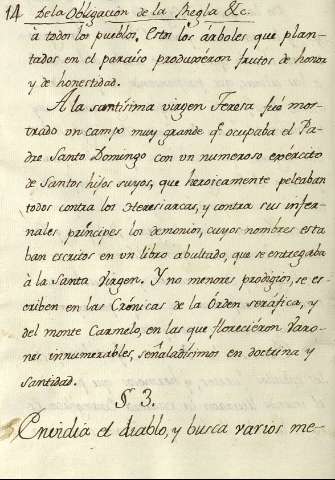 14 De la Obligacion de la Regla &c.
à todos los pueblos. Estos los árboles que plan-
tados en el paraiso produxeron frutos de honor
y de honestidad.
A la santísima virgen Teresa fué mos-
trado un campo muy grande qe. ocupaba el Pa-
dre Santo Domingo con un numeroso exército
de Santos hijos suyos, que heroicamente peleaban
todos contra los Heresiarcas, y contra sus infer-
nales príncipes los demonios, cuyos nombres esta
ban escritos en un libro abultado, que se entregaba
à la Santa Virgen. Y no menores prodigios, se es-
criben en las Crónicas de la Orden seráfica, y
del monte Carmelo, en las que floreciéron Varo-
nes innumerables, señaladísimos en doctrina y
santidad.
§. 3.
Envidia el diablo, y busca varios me-